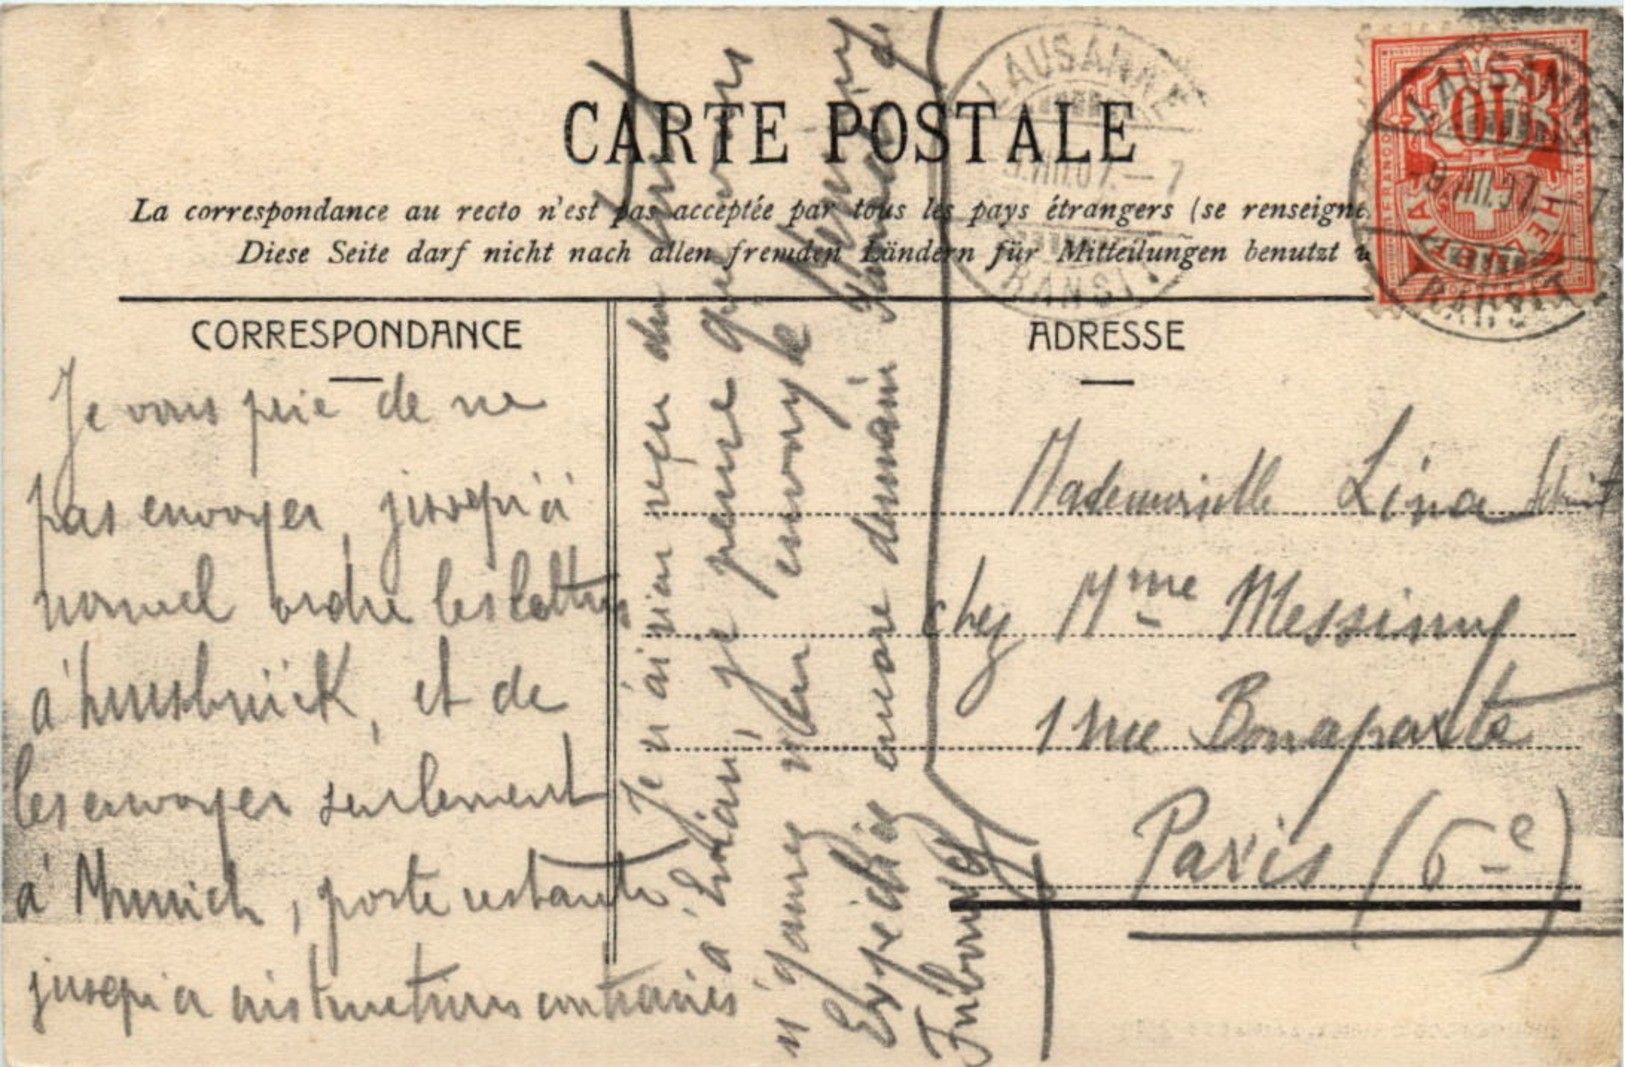 CARTE POSTALE
La correspondance au recto n'est pas acceptée par tous les pays étrangers (se renseigne
Diese Seite darf nicht nach allen fremden Ländern für Mitteilungen benutzt
CORRESPONDANCE
Je vous prie de ne
pas envoyer, jusqu'à
nouvel ordre les lettres
à Innsbrück, et de
les envoyer seulement
à Munich, poste restante
jusqu'à instructions contraires
Je n'ai rien reçu
à Evian, je pense que vous
n'aurez rien envoyé
Expédiez encore demain
Fribourg
ADRESSE
Mademoiselle Lina
chez Mme Messimy
1 rue Bonaparte
Paris (6e)
LAUSANNE
9.VIII.07.-7
TRANSIT
10
HELVETIA
LAUSANNE
9.VIII.07.-7
TRANSIT